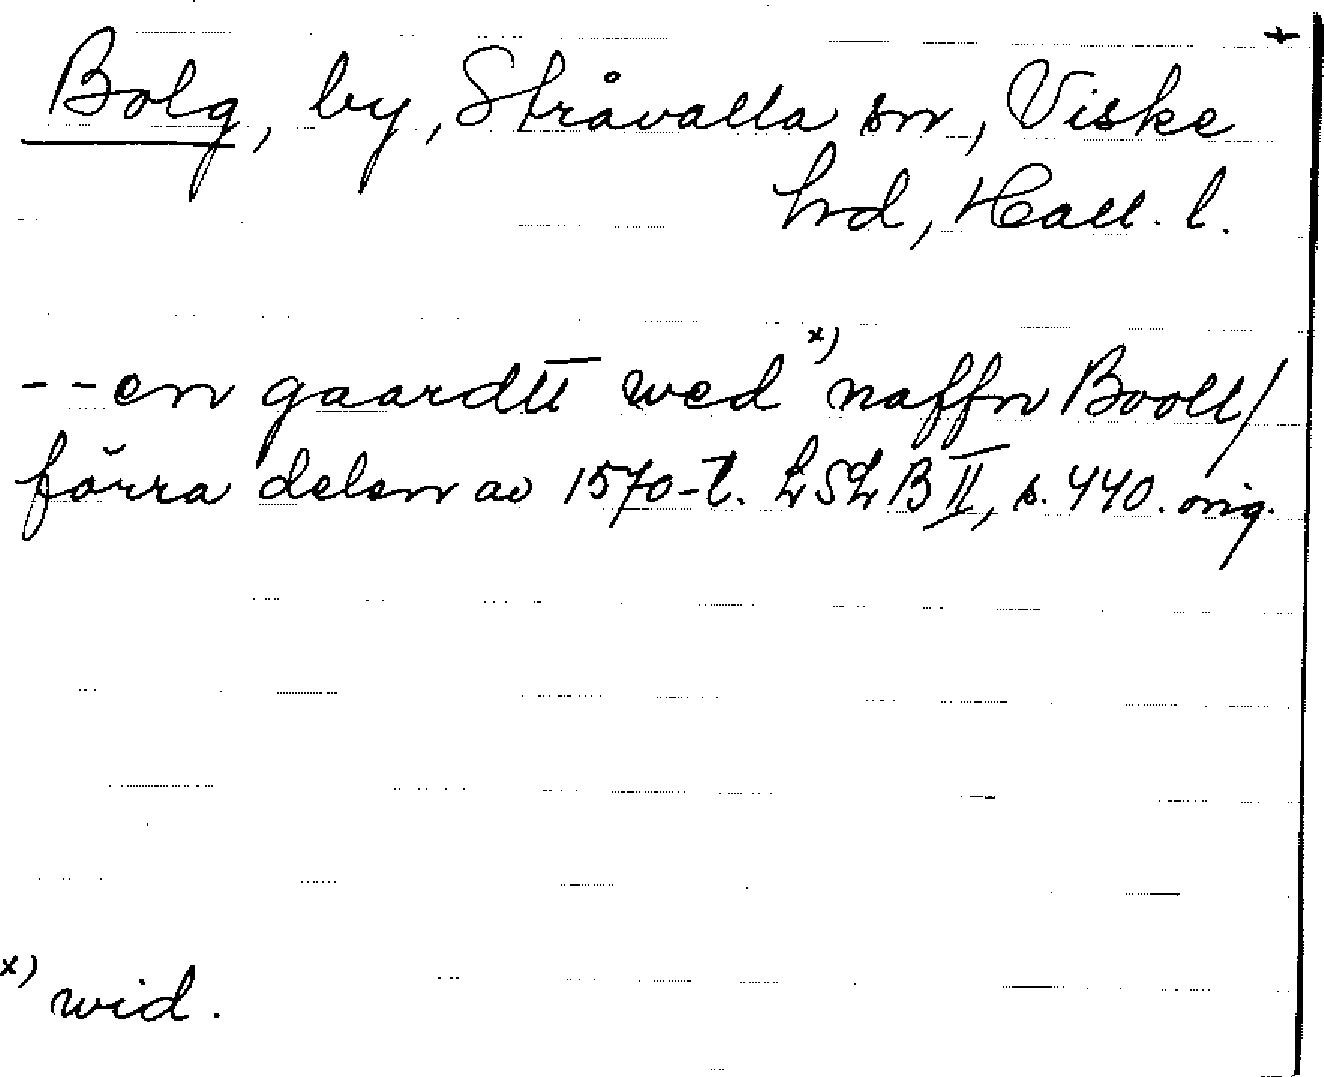 +
Bolg, by, Stråvalla sn, Viske
hrd, Hall. l.
--en gaardtt wed x) naffn Booll/
förra delen av 1570-t. LSL B II, s. 440. orig.
x) wid.